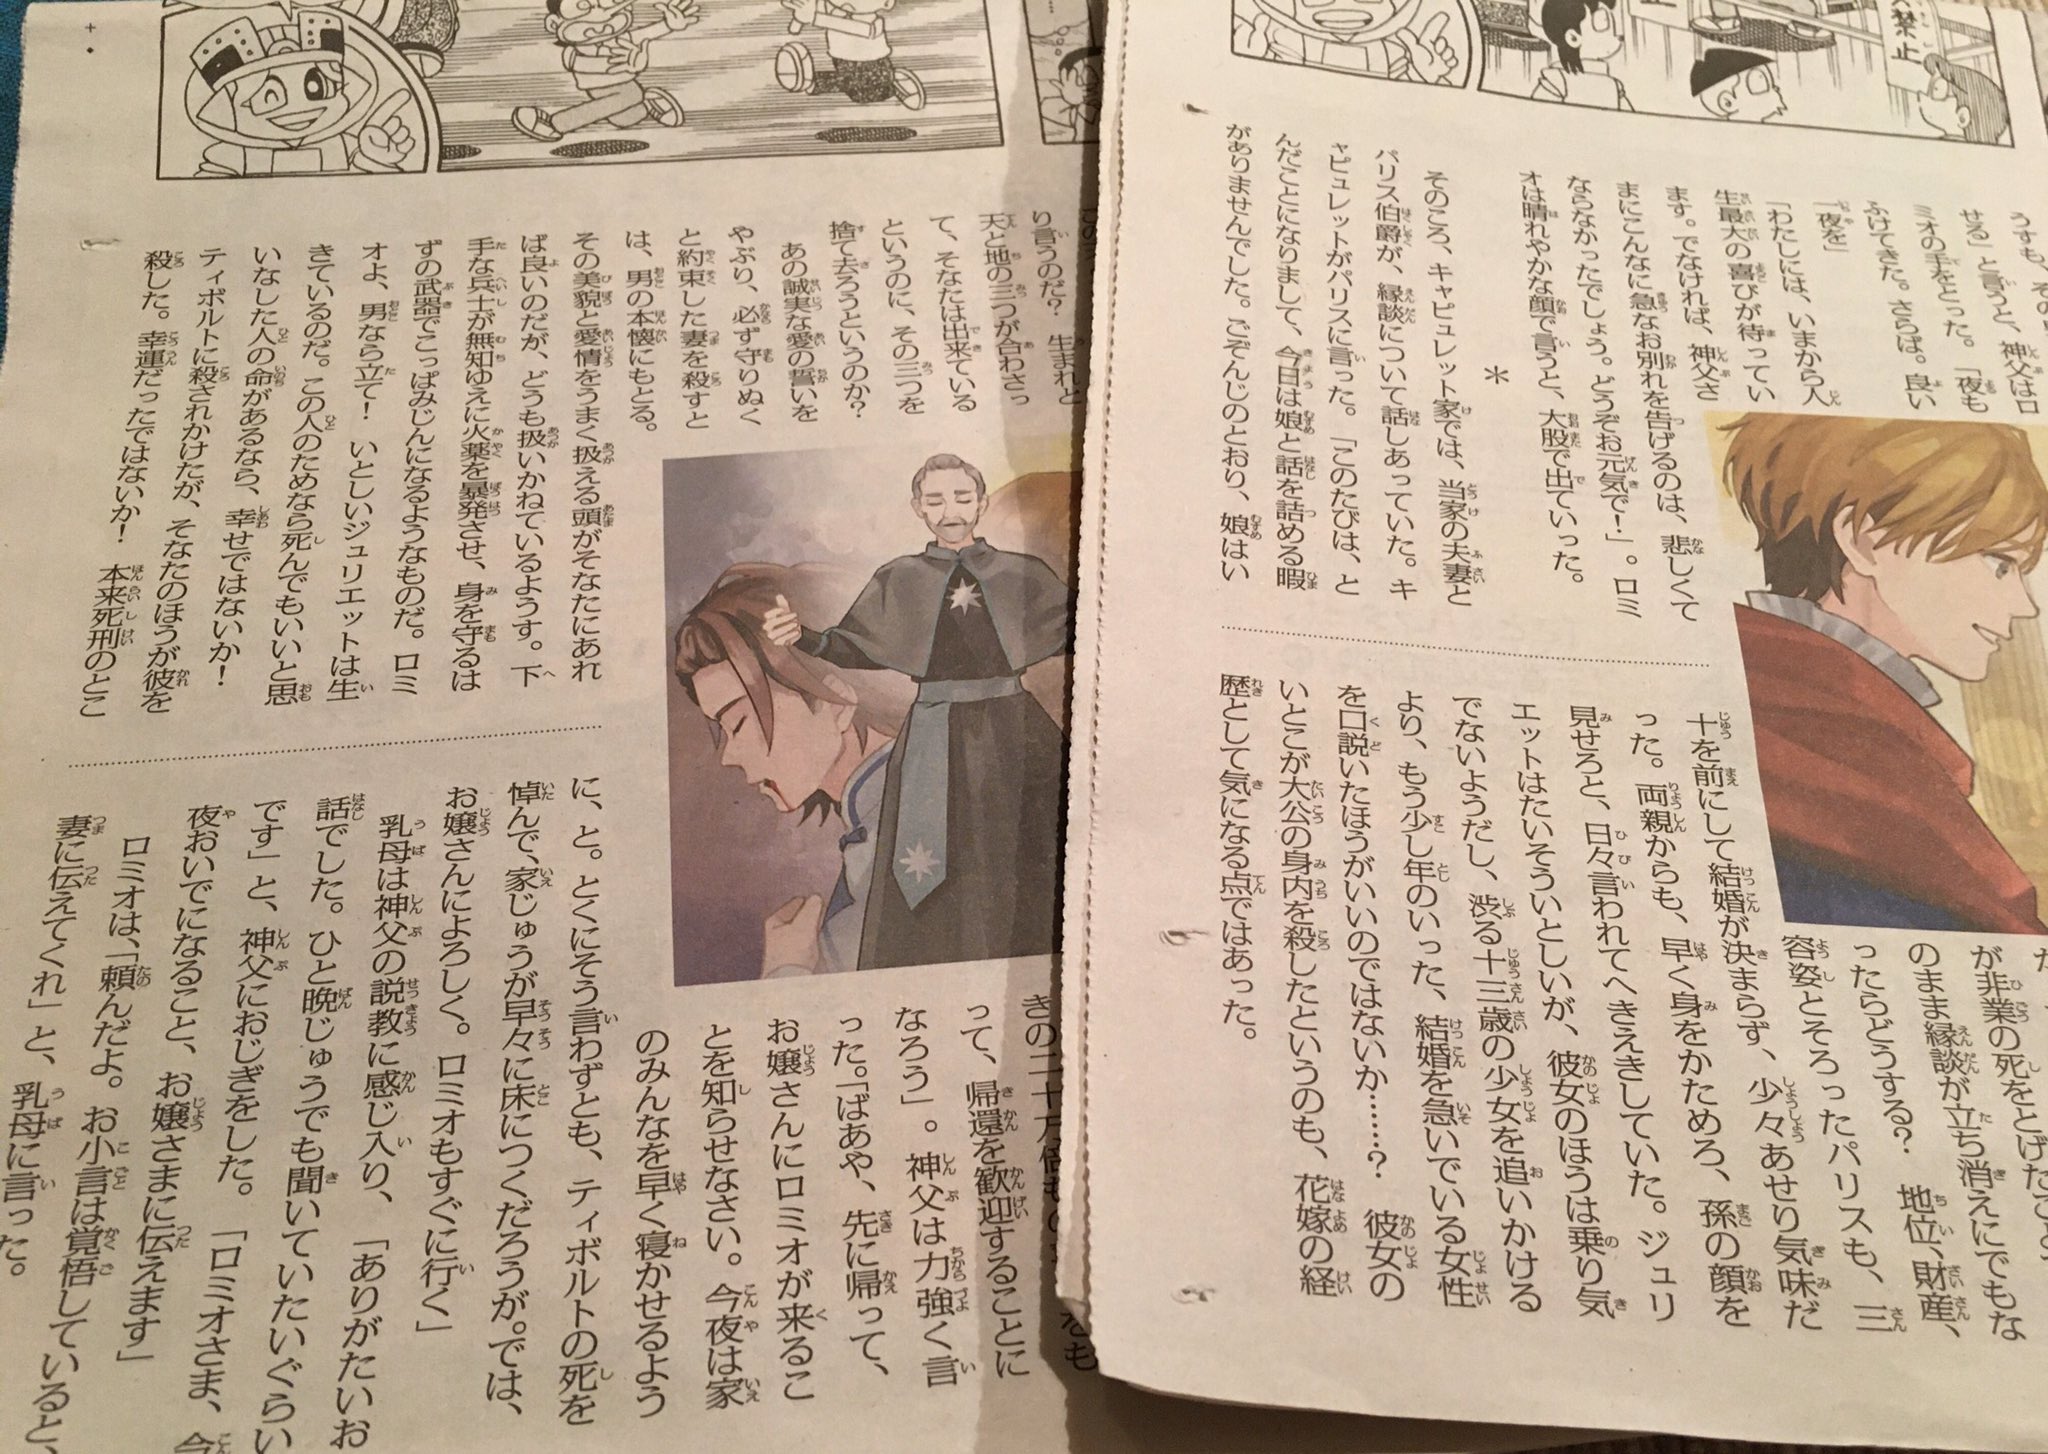 禁止
うすも、その
せる」と言うと、神父はロ
ミオの手をとった。「夜も
ふけてきた。さらば。良い
一夜を」
「わたしには、いまから人
生最大の喜びが待ってい
ます。でなければ、神父さ
まにこんなに急なお別れを告げるのは、悲しくて
ならなかったでしょう。どうぞお元気で！」。ロミ
オは晴れやかな顔で言うと、大股で出ていった。
＊
そのころ、キャピュレット家では、当家の夫妻と
パリス伯爵が、縁談について話しあっていた。キ
ャピュレットがパリスに言った。「このたびは、と
んだことになりまして、今日は娘と話を詰める暇
がありませんでした。ごぞんじのとおり、娘はい
が非業の死をとげたこと
のまま縁談が立ち消えにでもな
ったらどうする？　地位、財産、
容姿とそろったパリスも、三
十を前にして結婚が決まらず、少々あせり気味だ
った。両親からも、早く身をかためろ、孫の顔を
見せろと、日々言われてへきえきしていた。ジュリ
エットはたいそういとしいが、彼女のほうは乗り気
でないようだし、渋る十三歳の少女を追いかける
より、もう少し年のいった、結婚を急いでいる女性
を口説いたほうがいいのではないか……？　彼女の
いとこが大公の身内を殺したというのも、花嫁の経
歴として気になる点ではあった。
り言うのだ？　生まれと
天と地の三つが合わさっ
て、そなたは出来ている
というのに、その三つを
捨て去ろうというのか？
あの誠実な愛の誓いを
やぶり、必ず守りぬく
と約束した妻を殺すと
は、男の本懐にもとる。
その美貌と愛情をうまく扱える頭がそなたにあれ
ば良いのだが、どうも扱いかねているようす。下
手な兵士が無知ゆえに火薬を暴発させ、身を守るは
ずの武器でこっぱみじんになるようなものだ。ロミ
オよ、男なら立て！　いとしいジュリエットは生
きているのだ。この人のためなら死んでもいいと思
いなした人の命があるなら、幸せではないか！
ティボルトに殺されかけたが、そなたのほうが彼を
殺した。幸運だったではないか！　本来死刑のとこ
きの二十万倍もの
って、帰還を歓迎することに
なろう」。神父は力強く言
った。「ばあや、先に帰って、
お嬢さんにロミオが来るこ
とを知らせなさい。今夜は家
のみんなを早く寝かせるよう
に、と。とくにそう言わずとも、ティボルトの死を
悼んで、家じゅうが早々に床につくだろうが。では、
お嬢さんによろしく。ロミオもすぐに行く」
乳母は神父の説教に感じ入り、「ありがたいお
話でした。ひと晩じゅうでも聞いていたいぐらい
です」と、神父におじぎをした。「ロミオさま、今
夜おいでになること、お嬢さまに伝えます」
ロミオは、「頼んだよ。お小言は覚悟していると、
妻に伝えてくれ」と、乳母に言った。